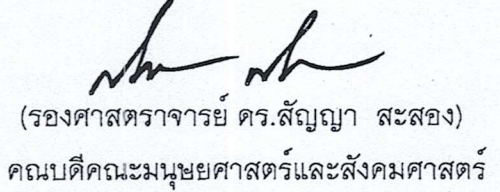 (รองศาสตราจารย์ ดร.สัญญา สะสอง)
คณบดีคณะมนุษยศาสตร์และสังคมศาสตร์